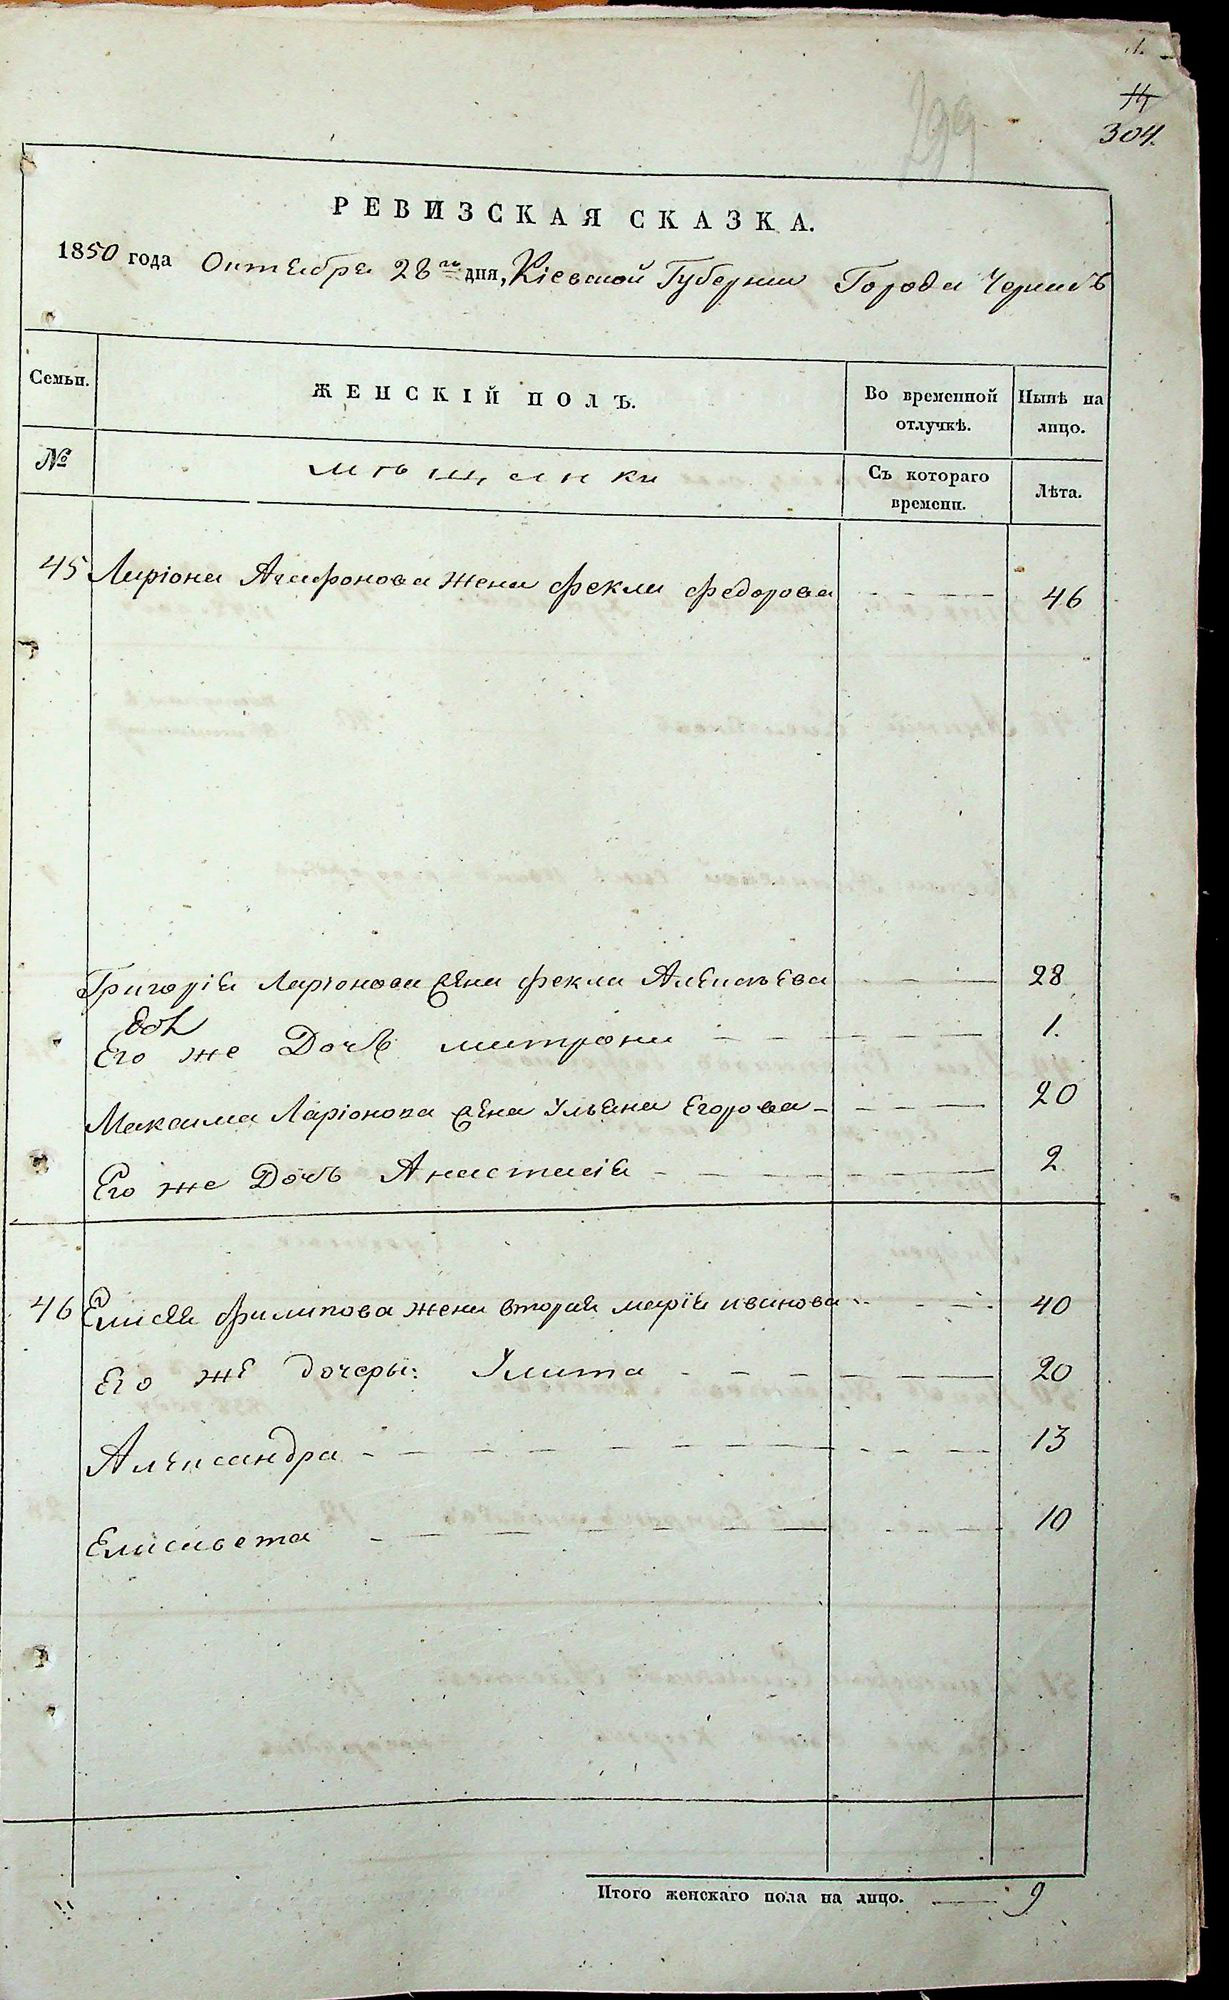 299
14
304.
РЕВИЗСКАЯ СКАЗКА.
1850 года Октября 28 го дня, Кіевской Губерніи Города Черкасъ
Семьи.
ЖЕНСКІЙ ПОЛЪ.
Во временной отлучкѣ.
Нынѣ на лицо.
№
мѣщанки
Съ котораго времени.
Лѣта.
45 Ларіона Агафонова жена Фекла Федорова 46
Григорія Ларіонова жена Фекла Алексѣева 28
Его же Дочь Матрона 1.
Максима Ларіонова жена Ульяна Егорова 20
Его же Дочь Анастасія 2
46 Елисея Филипова жена вторая марія иванова 40
Его же дочеры: Улита 20
Александра 13
Елисавета 10
Итого женскаго пола на лицо. 9